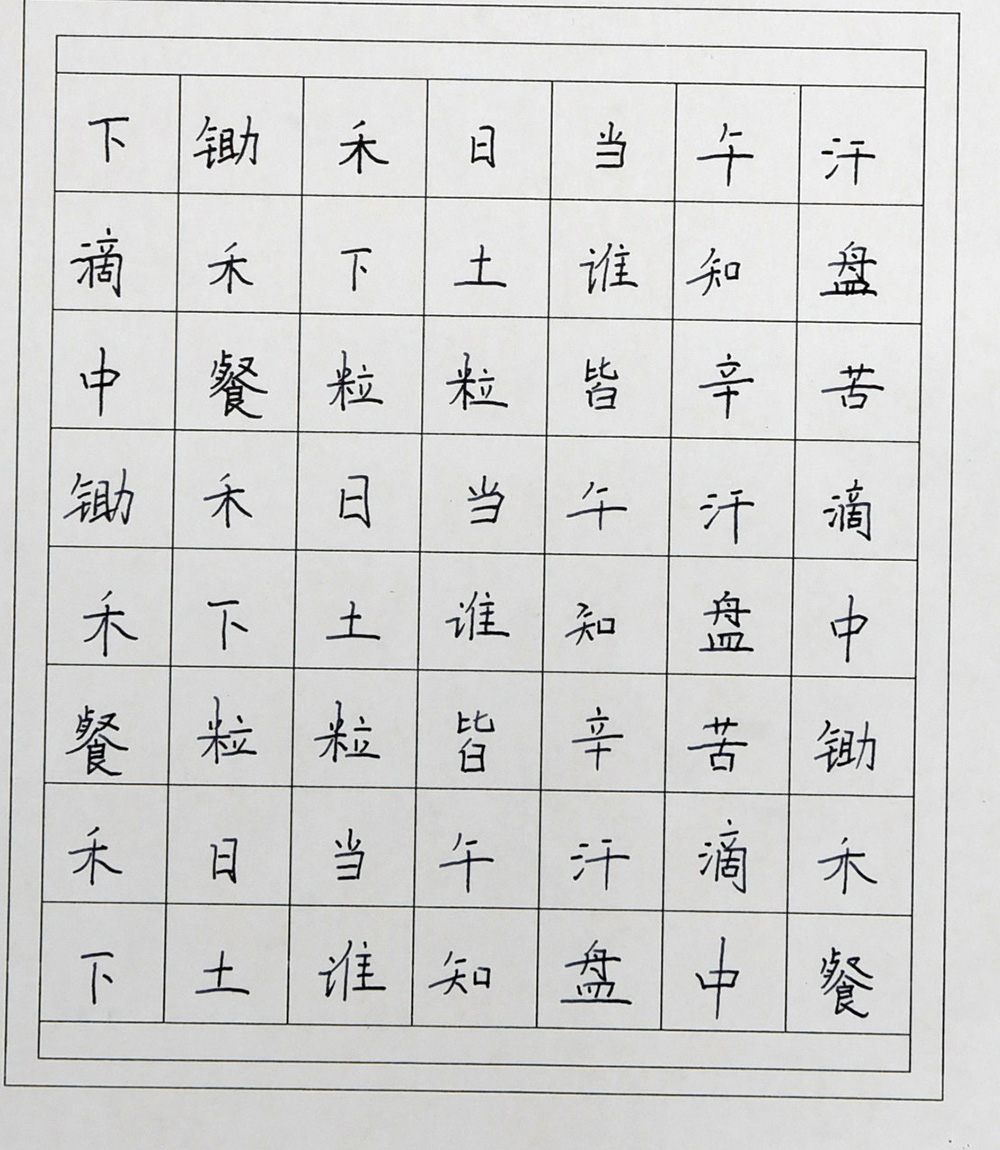 下锄禾日当午汗
滴禾下土谁知盘
中餐粒粒皆辛苦
锄禾日当午汗滴
禾下土谁知盘中
餐粒粒皆辛苦锄
禾日当午汗滴禾
下土谁知盘中餐